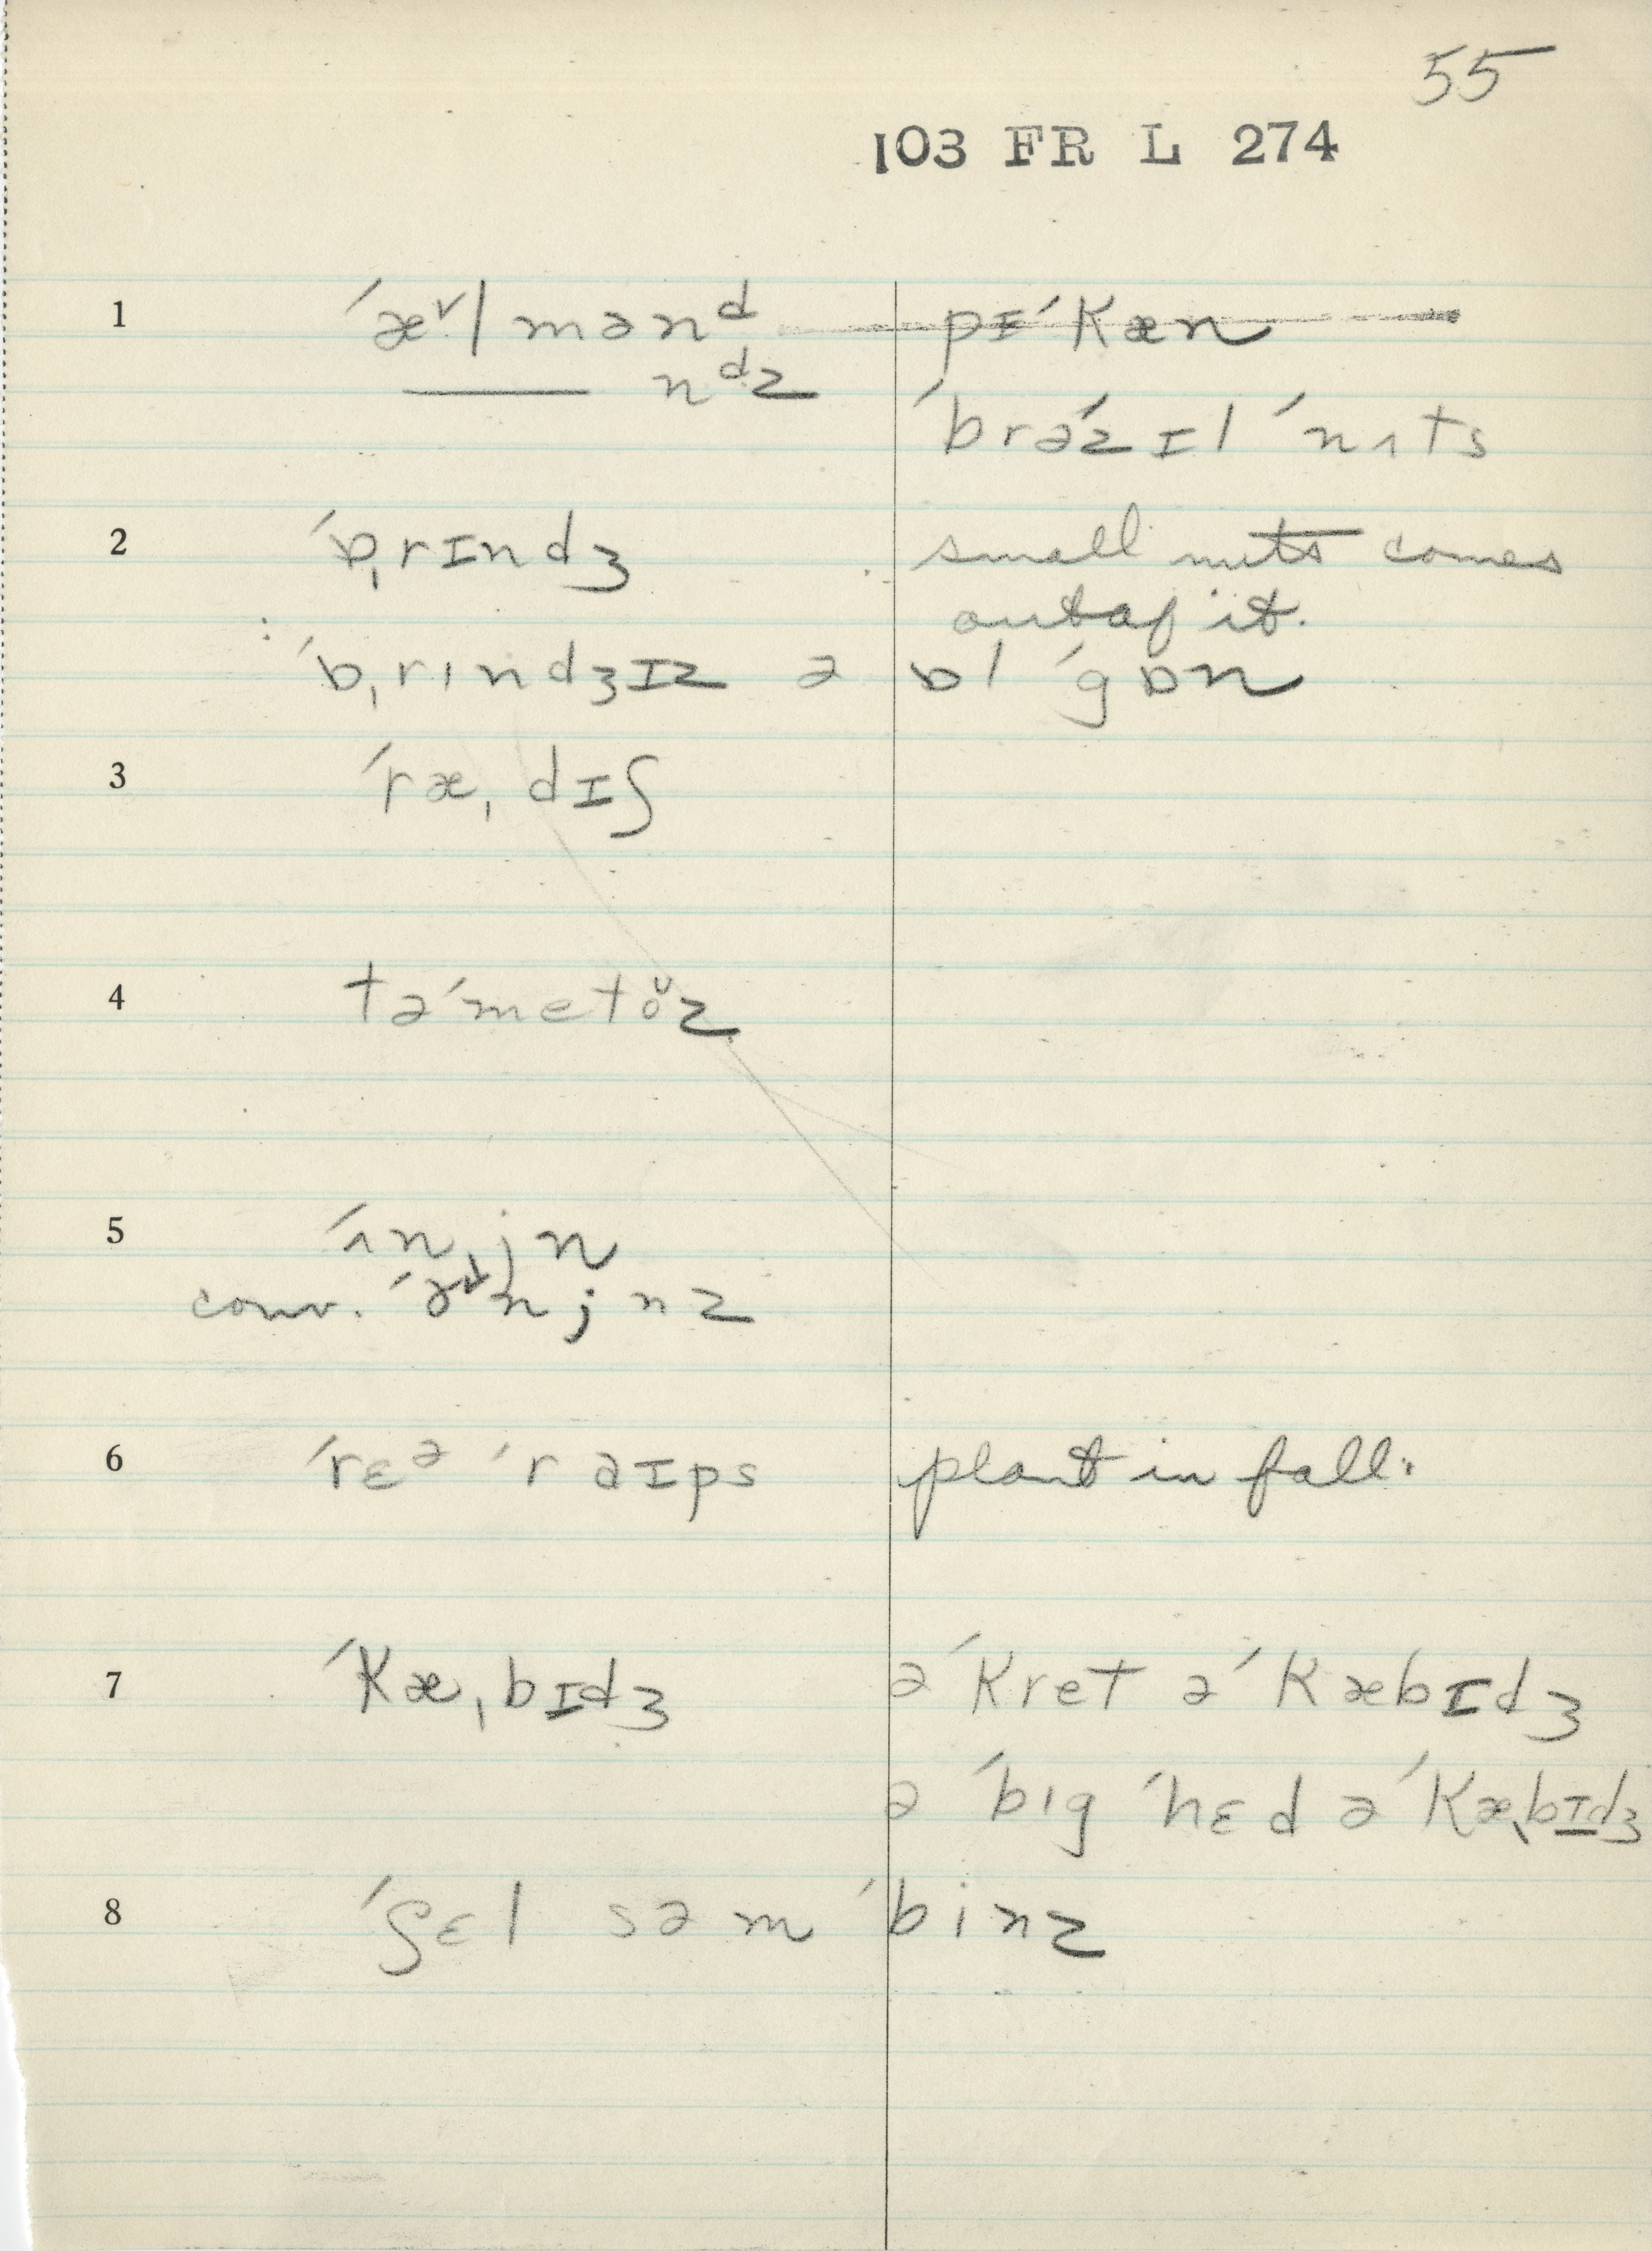 55
103 FR L 274
1 ˈæ˅lmənᵈ pɪˈkæn
—— nᵈz
ˈbrəˈzɪl ˈnʌts
2 ˈɒ,rɪndʒ small nuts comes
out of it.
ˈɒ,rɪndʒɪz ə ɒl ˈgɒn
3 ˈræ,dɪʃ
4 təˈmetŏz
5 ˈʌn,jn
conv. ˈənjnz
6 ˈrɛᵊ ˈraɪps plant in fall.
7 ˈkæ,bɪdʒ ə ˈkret ə ˈkæbɪdʒ
ə ˈbɪg ˈhɛd ə ˈkæ,bɪdʒ
8 ˈʃɛl səm ˈbinz